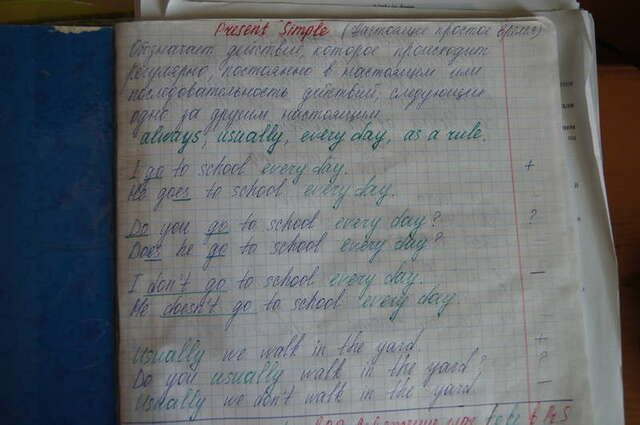 Present Simple (Настоящее простое время)
Обозначает действие, которое происходит
регулярно, постоянно в настоящем или
последовательность действий, следующих
одно за другим настоящим.
always, usually, every day, as a rule.
I go to school every day. +
He goes to school every day.
Do you go to school every day? ?
Does he go to school every day?
I don't go to school every day. —
He doesn't go to school every day.
Usually we walk in the yard +
Do you usually walk in the yard? ?
Usually we don't walk in the yard —